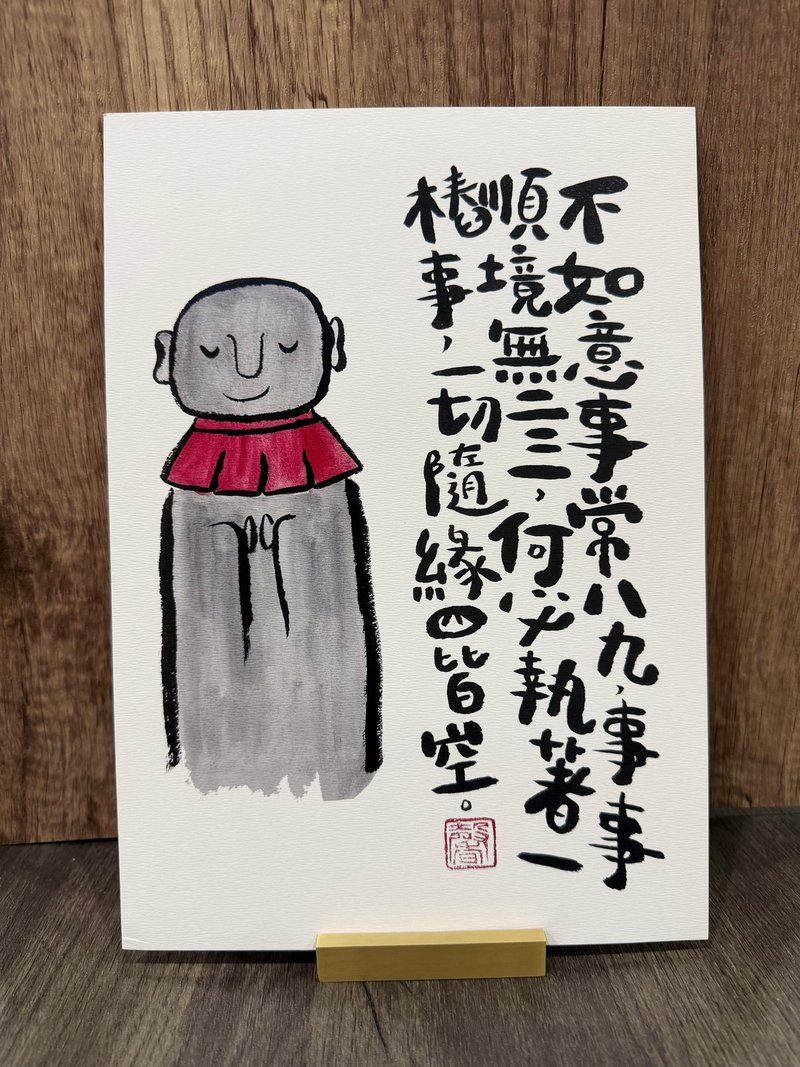 不如意事常八九，事事
順境無二三，何必執著一
樁事，一切隨緣四皆空。